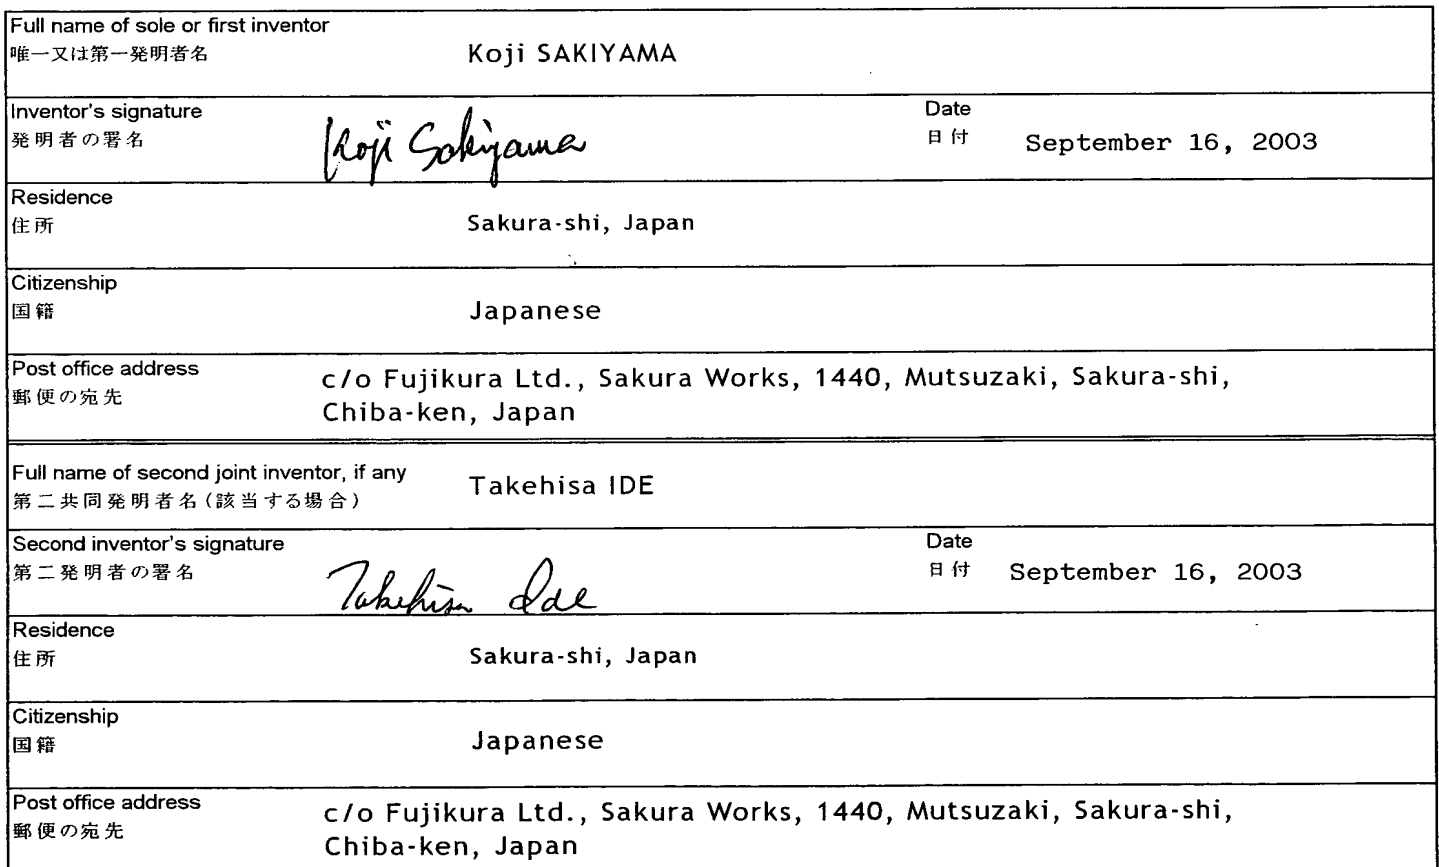 Full name of sole or first inventor
唯一又は第一発明者名 Koji SAKIYAMA
Inventor's signature Date
発明者の署名 Koji Sakiyama 日付 September 16, 2003
Residence
住所 Sakura-shi, Japan
Citizenship
国籍 Japanese
Post office address c/o Fujikura Ltd., Sakura Works, 1440, Mutsuzaki, Sakura-shi,
郵便の宛先 Chiba-ken, Japan
Full name of second joint inventor, if any Takehisa IDE
第二共同発明者名（該当する場合）
Second inventor's signature Date
第二発明者の署名 Takehisa Ide 日付 September 16, 2003
Residence
住所 Sakura-shi, Japan
Citizenship
国籍 Japanese
Post office address c/o Fujikura Ltd., Sakura Works, 1440, Mutsuzaki, Sakura-shi,
郵便の宛先 Chiba-ken, Japan